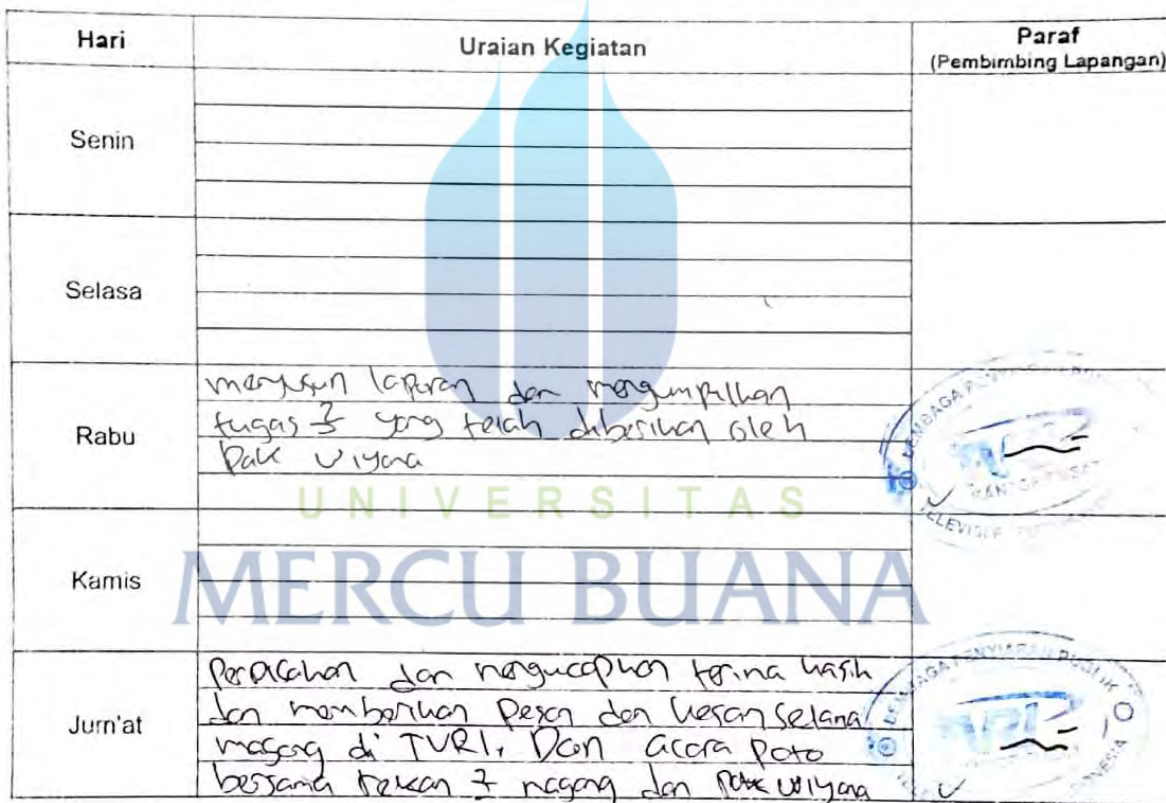 Hari
Uraian Kegiatan
Paraf
(Pembimbing Lapangan)
Senin
Selasa
Rabu
menyusun laporan dan mengumpulkan
tugas 2 yang telah diberikan oleh
Pak Wiyana
LEMBAGA PENYIARAN
KANTOR PUSAT
TELEVISI
UNIVERSITAS
MERCU BUANA
Kamis
Jum'at
Perpisahan dan mengucapkan terima kasih
dan memberikan pesan dan kesan selama
magang di TVRI, Dan acara poto
bersama rekan 2 magang dan Pak Wiyana
LEMBAGA PENYIARAN PUBLIK